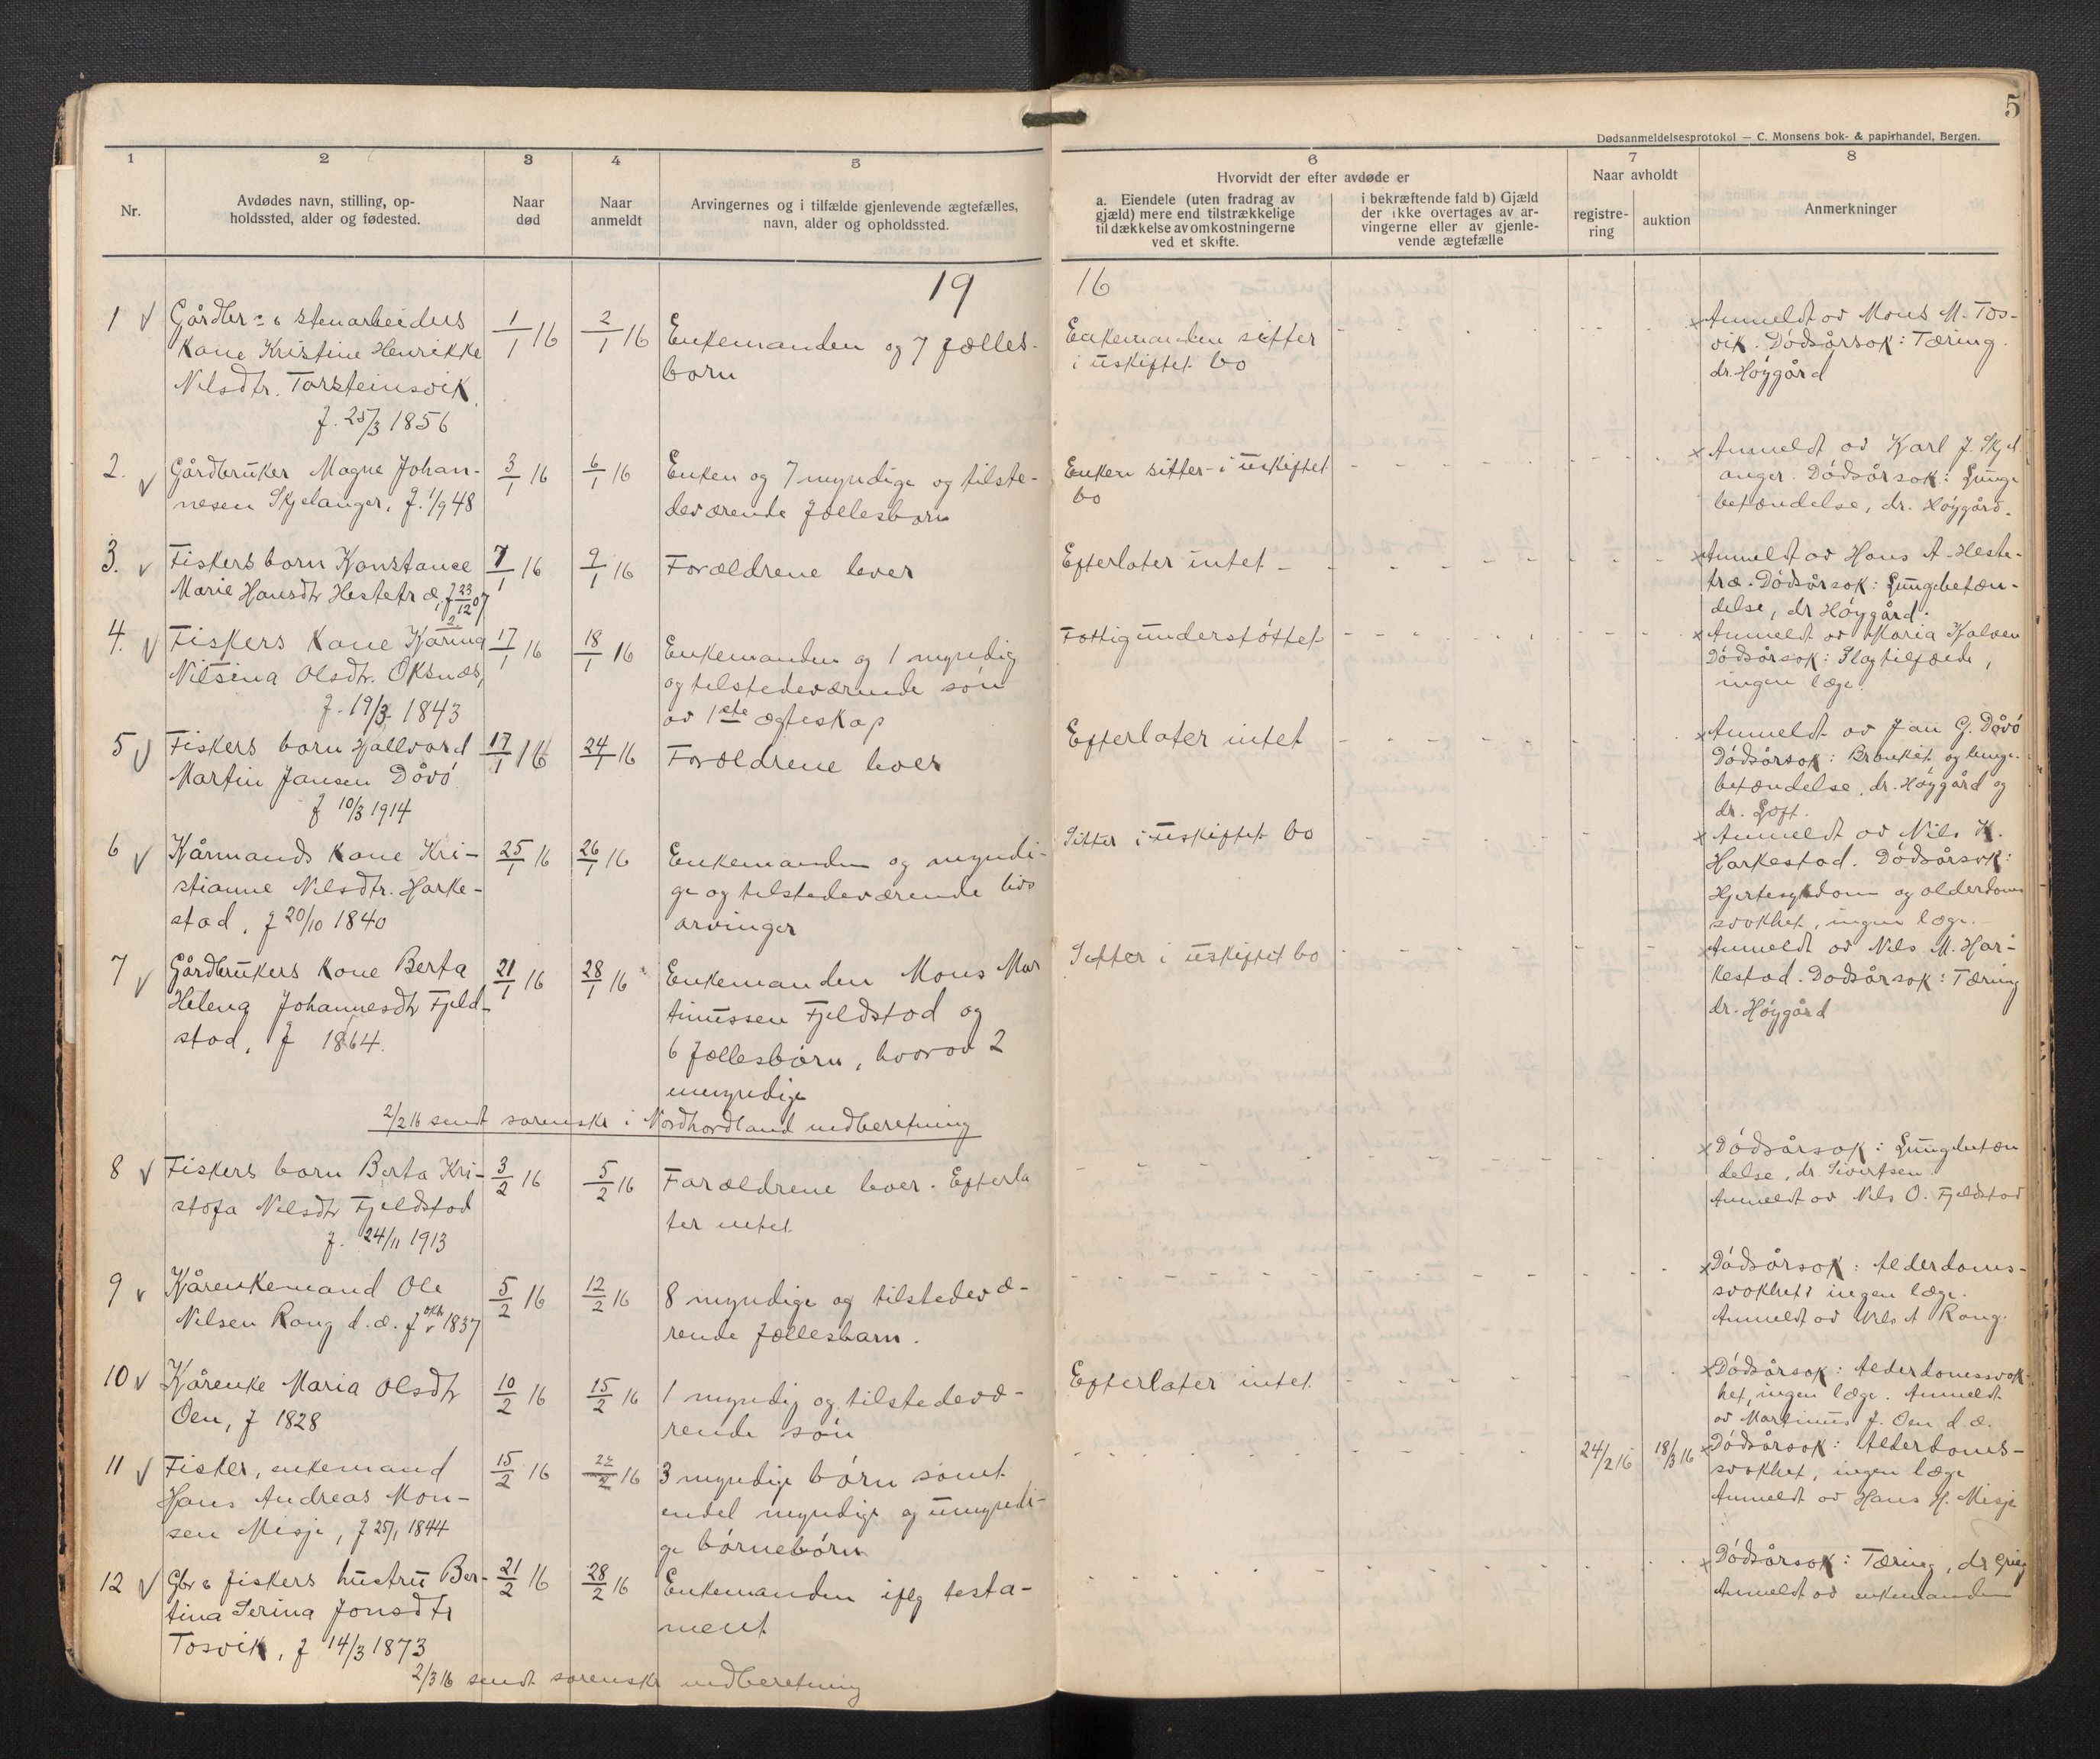 5
Dødsanmeldelsesprotokol — C. Monsens bok- & papirhandel, Bergen.
1 2 3 4 5 6 7 8
Nr.
Avdødes navn, stilling, op-
holdssted, alder og fødested.
Naar
død
Naar
anmeldt
Arvingernes og i tilfælde gjenlevende ægtefælles,
navn, alder og opholdssted.
Hvorvidt der efter avdøde er
a. Eiendele (uten fradrag av
gjæld) mere end tilstrækkelige
til dækkelse av omkostningerne
ved et skifte.
i bekræftende fald b) Gjæld
der ikke overtages av ar-
vingerne eller av gjenle-
vende ægtefælle
Naar avholdt
registre-
ring
auktion
Anmerkninger
19 16
1 Gårdbr = & stenarbeiders
Kone Kristine Henrikke
Nilsdtr. Torsteinsvik.
f. 25/3 1856
1/1 16
2/1 16
Enkemanden og 7 fælles-
born
Enkemanden sitter
i uskiftet bo
Anmeldt av Mons M. Tos-
vik. Dödsårsok: Tæring.
dr. Höygård
2. Gårdbruker Magne Johan-
nesen Skjelanger, f. 1/9 48
3/1 16
6/1 16
Enken og 7 myndige og tilste-
deværende fællesborn
Enken sitter i uskiftet
bo
Anmeldt av Karl J. Skjel
anger. Dödsårsok: Lunge
betændelse, dr. Höygård.
3. Fiskers born Konstance
Marie Hansdtr Hestetræ, f 23/12 07
7/1 16
9/1 16
Forældrene lever
Efterlater intet
Anmeldt av Hans A. Heste-
træ. Dödsårsok: Lungebetæn-
delse, dr Höygård.
4. Fiskers Kone Karina
Nilsina Olsdtr. Oksnes,
f. 19/3 1843
17/1 16
18/1 16
Enkemanden og 1 myndig
og tilstedeværende sön
av 1ste ægteskap
Fattigunderstöttet
Anmeldt av Maria Kalven
Dödsårsok: Slagtilfælde,
ingen læge.
5 Fiskers born Hallvard
Martin Jansen Dåvö
f 10/3 1914
17/1 16
24/1 16
Forældrene lever
Efterlater intet
Anmeldt av Jan G. Dåvö
Dödsårsok: Bronkit og lunge-
betændelse, dr. Höygård og
dr. Loft.
6 Kårmands Kone Kri-
stianne Nilsdtr. Harke-
stad, f 20/10 1840
25/1 16
26/1 16
Enkemanden og myndi-
ge og tilstedeværende livs
arvinger
Sitter i uskiftet bo
Anmeldt av Nils K.
Harkestad. Dödsårsok:
Hjertesykdom og alderdoms
svakhet, ingen læge.
7 Gårdbrukers Kone Berta
Helena Johannesdtr Fjeld-
stad, f 1864.
21/1 16
28/1 16
Enkemanden Mons Mar
tinussen Fjeldstad og
6 fællesbörn, hvorav 2
umyndige
Sitter i uskiftet bo
Anmeldt av Nils M. Har-
kestad. Dödsårsok: Tæring
dr. Höygård
2/2 16 sendt sorenskr i Nordhordland indberetning
8 Fiskers born Berta Kri-
stofa Nilsdtr Fjeldstad
f. 24/11 1913
3/2 16
5/2 16
Forældrene lever. Efterla
ter intet
Dödsårsok: Lungebetæn
delse, dr. Sivertsen.
Anmeldt av Nils O. Fjeldstad
9 Kårenkemand Ole
Nilsen Rong d.æ. f 1837
5/2 16
12/2 16
8 myndige og tilstedevæ-
rende fællesbarn.
Dödsårsok: Alderdoms-
svakhet ingen læge.
Anmeldt av Nils A Rong.
10 Kårenke Maria Olsdtr
Oen, f 1828
10/2 16
15/2 16
1 myndig og tilstedevæ-
rende sön
Efterlater intet
Dödsårsok: Alderdomssvak-
het, ingen læge. Anmeldt
av Martinus J. Oen d.æ.
11 Fisker, enkemand
Hans Andreas Mon-
sen Misje, f 25/1 1844
15/2 16
22/2 16
3 myndige börn samt
endel myndige og umyndi-
ge börnebörn
24/2 16
18/3 16
Dödsårsok: Alderdoms-
svakhet, ingen læge
Anmeldt av Hans H. Misje
12 Gbr & fiskers hustru Ber-
tina Serina Jonsdtr
Tosvik, f 14/3 1873
21/2 16
28/2 16
Enkemanden iflg testa-
ment
Dödsårsok: Tæring, dr Grieg
Anmeldt av enkemanden
2/3 16 sendt sorenskr indberetning